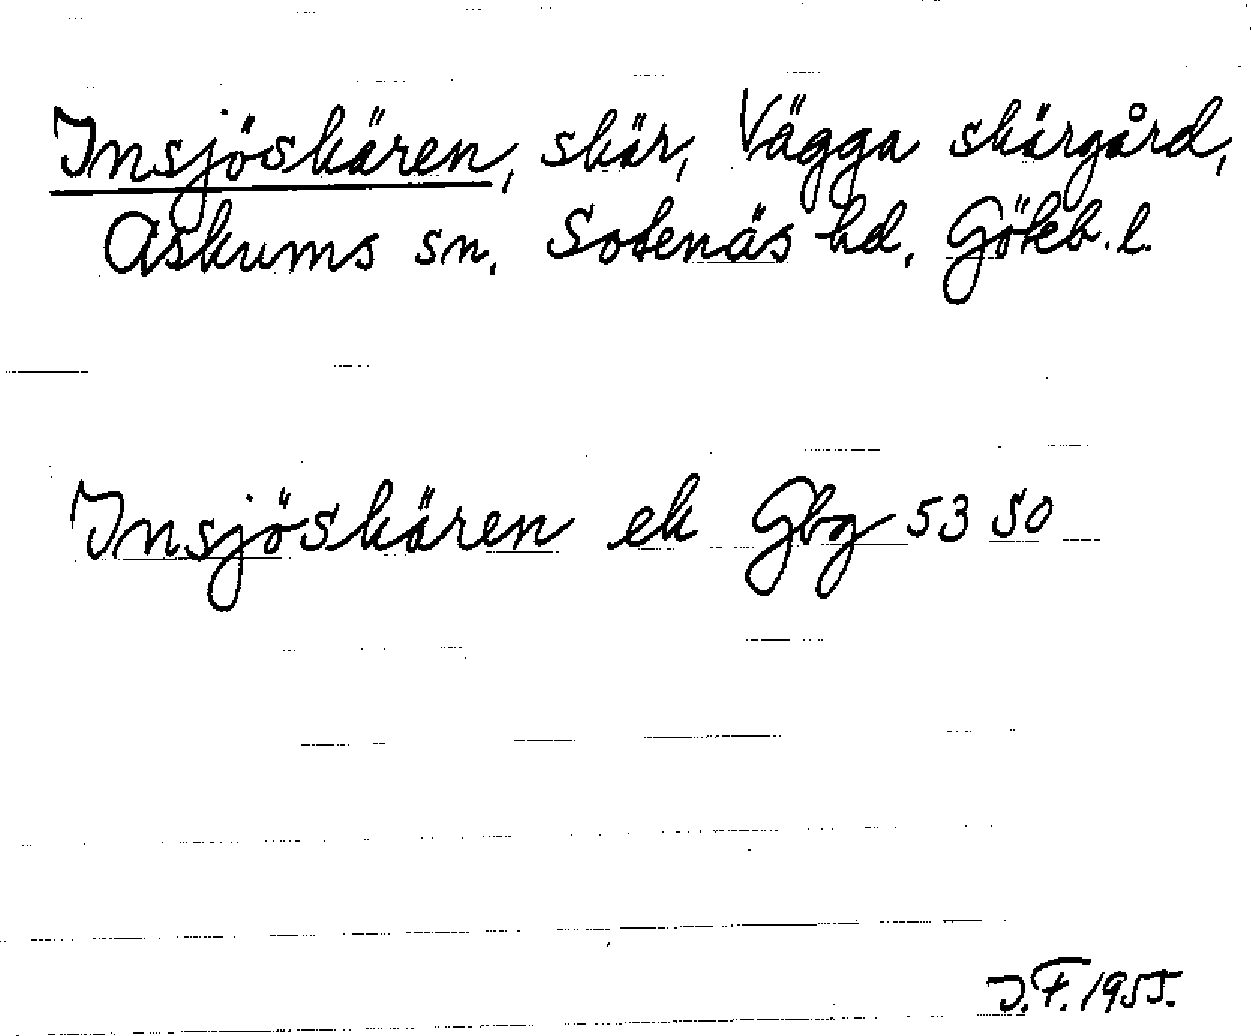 Insjöskären, skär, Vägga skärgård,
Askums sn, Sotenäs hd, Göteb. l.
Insjöskären ek Gbg 53 SO
J.F. 1955.